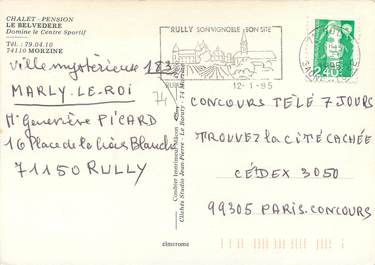 CHALET - PENSION
LE BELVEDERE
Domine le Centre Sportif
Tél. : 79.04.10
74110 MORZINE
Ville mystérieuse 183
MARLY-LE-ROI
Mme Geneviève PICARD
16 Place de la Croix Blanche
71150 RULLY
RULLY SON VIGNOBLE SON SITE
12-1-95
2,40
Combier Imprimeur Mâcon
Clichés Studio Jean-Pierre - Le Baraty - 74 Morzine
CONCOURS TÉLÉ 7 JOURS
TROUVEZ LA CITÉ CACHÉE
CÉDEX 3050
99305 PARIS-CONCOURS
cimcrome